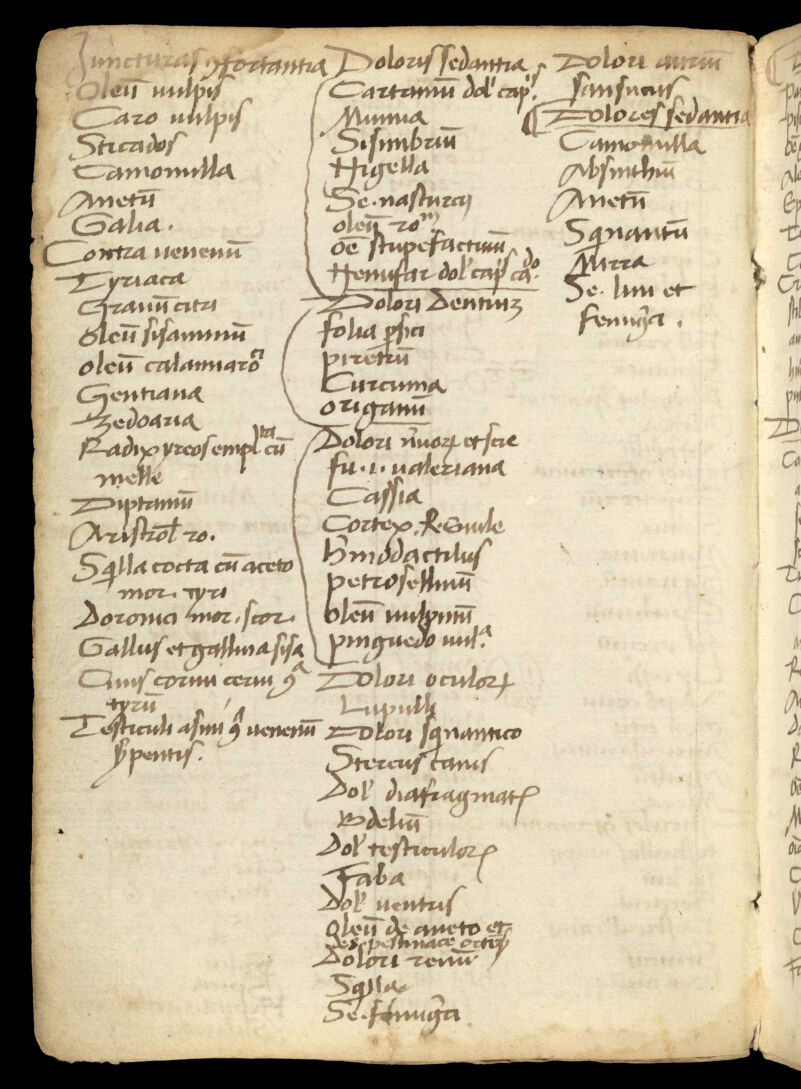 Juncturas ꝯfortantia
Oleū uulpis
Caro uulpis
Sticados
Camomilla
Anetū
Galia.
Contra uenenū
Tyriaca
Granū citri
Oleū sisaminū
Oleū
Gentiana
Zedoaria
Radix yreos cū
melle
Diptamū
Aristol ro.
Sqilla cocta cū aceto
mor. tyri
Doronici mor. scor.
Gallus et gallina
Cinis cornu cerui ꝯᵃ
tyrū
Testiculi asini ꝯᵃ uenenū
ẜpentis.
Doloris sedantia
Cartamū dol' cap's.
Mumia
Sisimbriū
Nigella
Se. nasturcij
oleū ro
oē stupefactiuū
Nenufar dol' cap's cado.
Dolori Dentiuꝫ
folia ꝑsici
piretrū
Curcuma
origanū
Dolori et scie
fu. i. ualeriana
Cassia
Cortex
h'modactilus
petrosellinū
oleū uulpinū
pinguedo uulᵃ.
Dolori oculoꝝ
Lupulli
Dolori sqinantico
Stercus canis
Dol' diafragmatꝭ
Bdeliū
Dol' testiculoꝝ
Faba
Dol' uentris
Oleū de aneto et
Dolori renū
Sqilla
Se. fenug'ci
Dolori auriū
sansucus
Dolores sedantia
Camomilla
Absinthiū
Anetū
Sqinantū
Mirra
Se. lini et
fenug'ci.